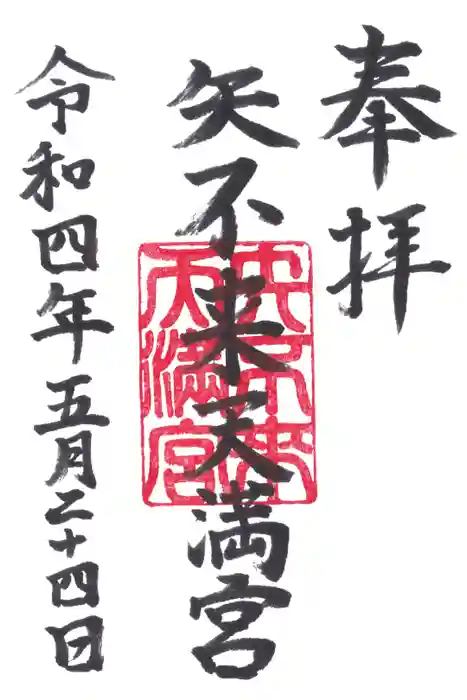 奉拝
矢不来天満宮
矢不来
天満宮
令和四年五月二十四日